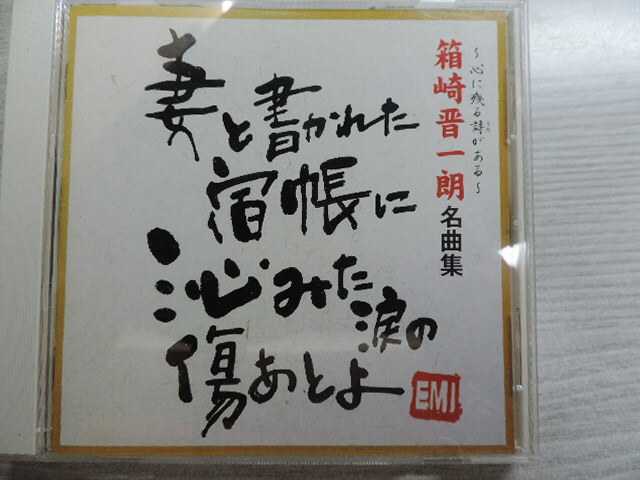 ～心に残る詩がある～
うた
箱崎晋一朗名曲集
妻と書かれた
宿帳に
沁みた
涙の
傷あとよ
EMI